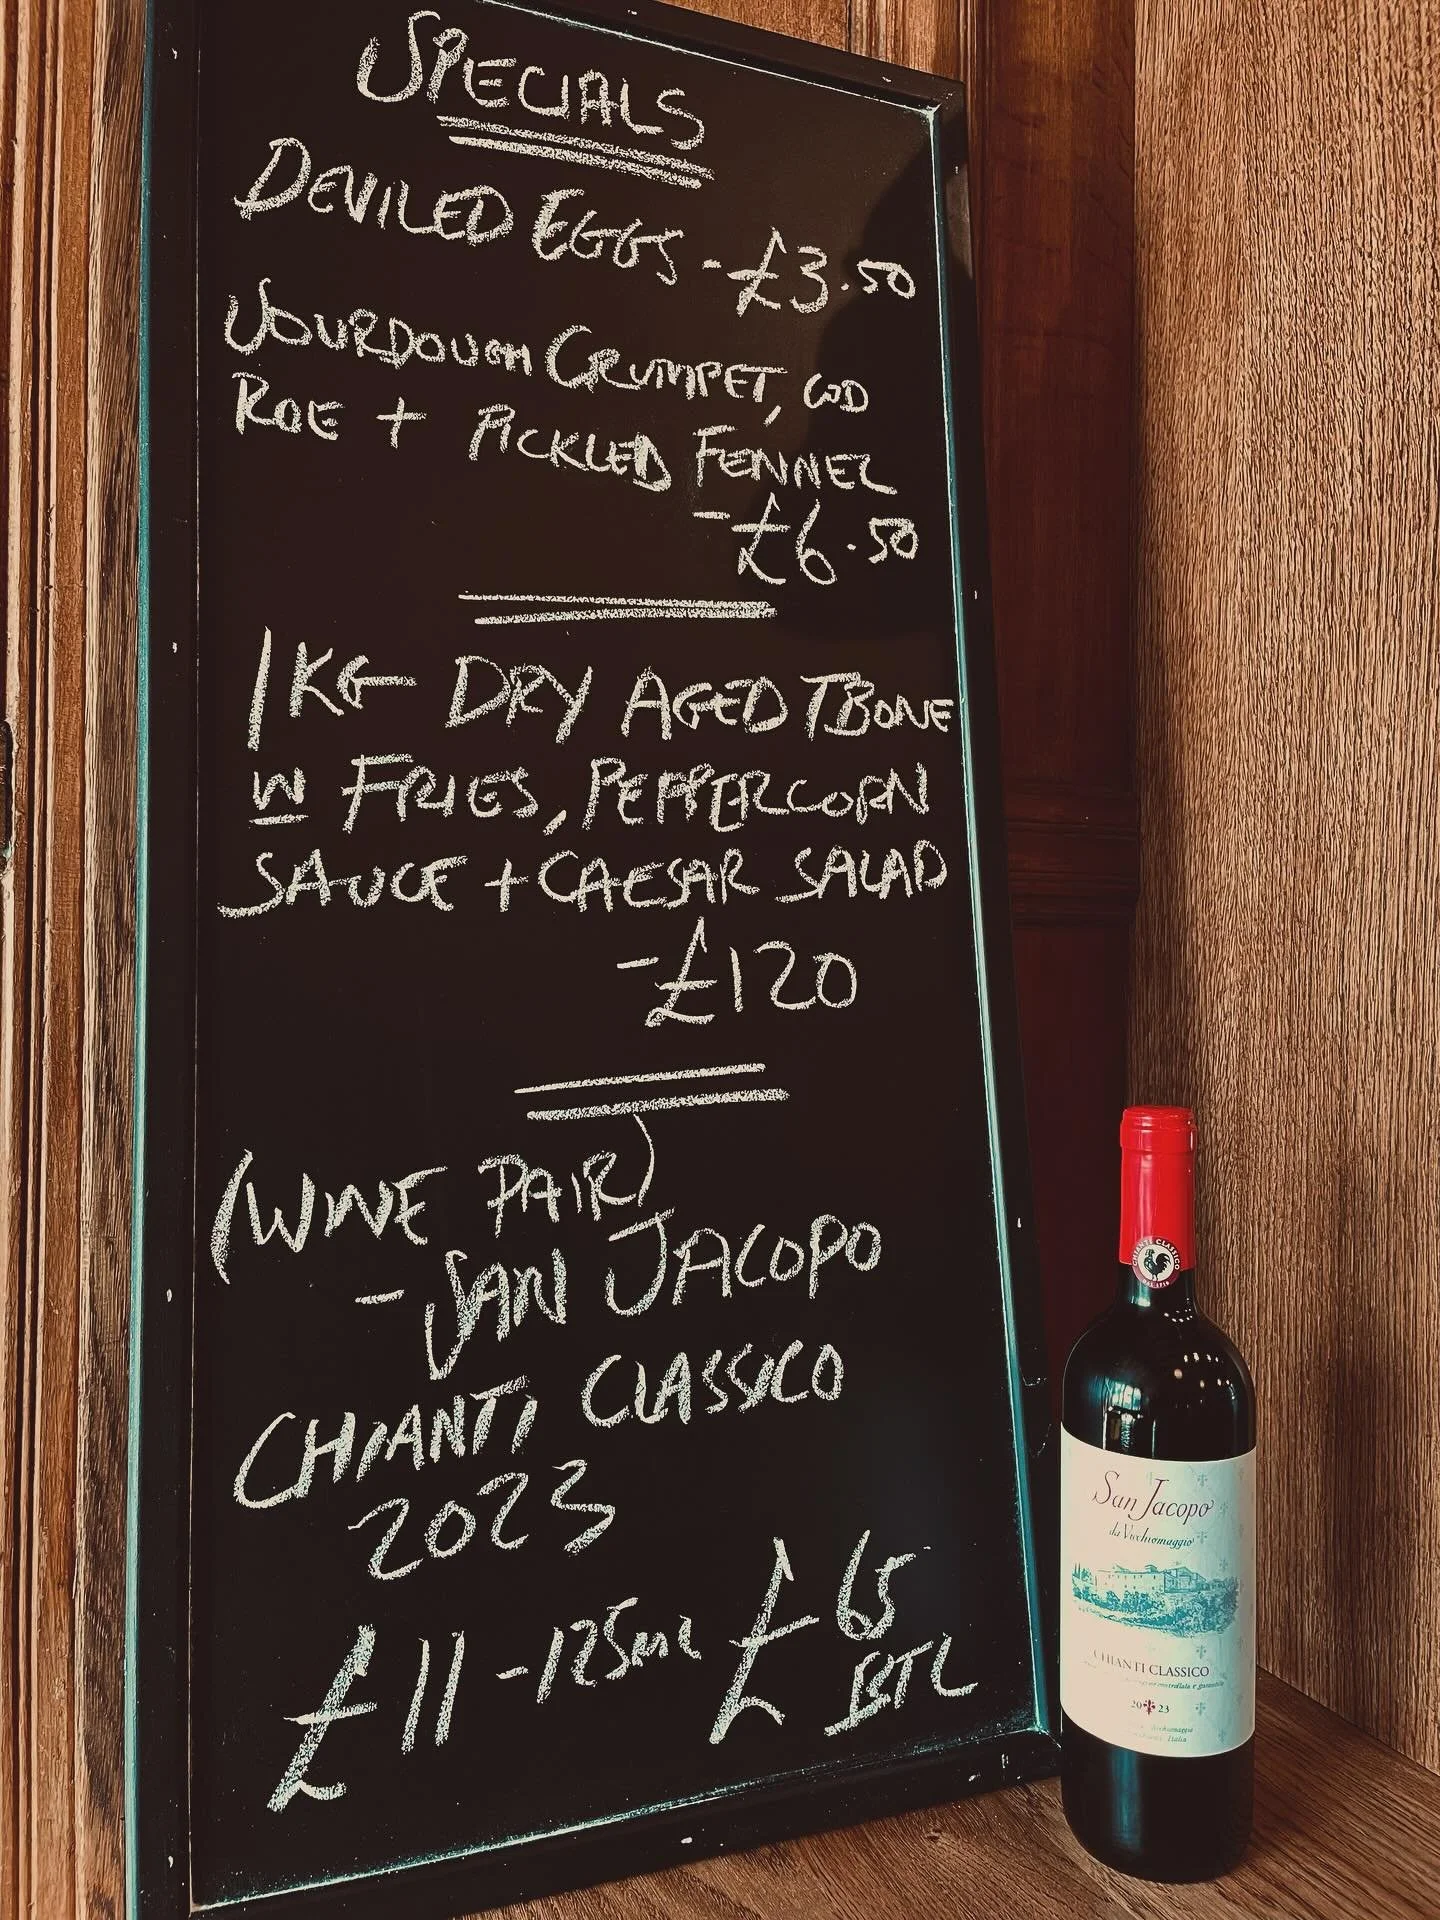 SPECIALS
DEVILED EGGS - £3.50
SOURDOUGH CRUMPET, COD
ROE + PICKLED FENNEL
- £6.50
1KG DRY AGED TBONE
W FRIES, PEPPERCORN
SAUCE + CAESAR SALAD
- £120
(WINE PAIR)
- SAN JACOPO
CHIANTI CLASSICO
2023
£11 - 125ML £65
BTL
CHIANTI CLASSICO
San Jacopo
da Vicchiomaggio
CHIANTI CLASSICO
2023
Vicchiomaggio
Italia